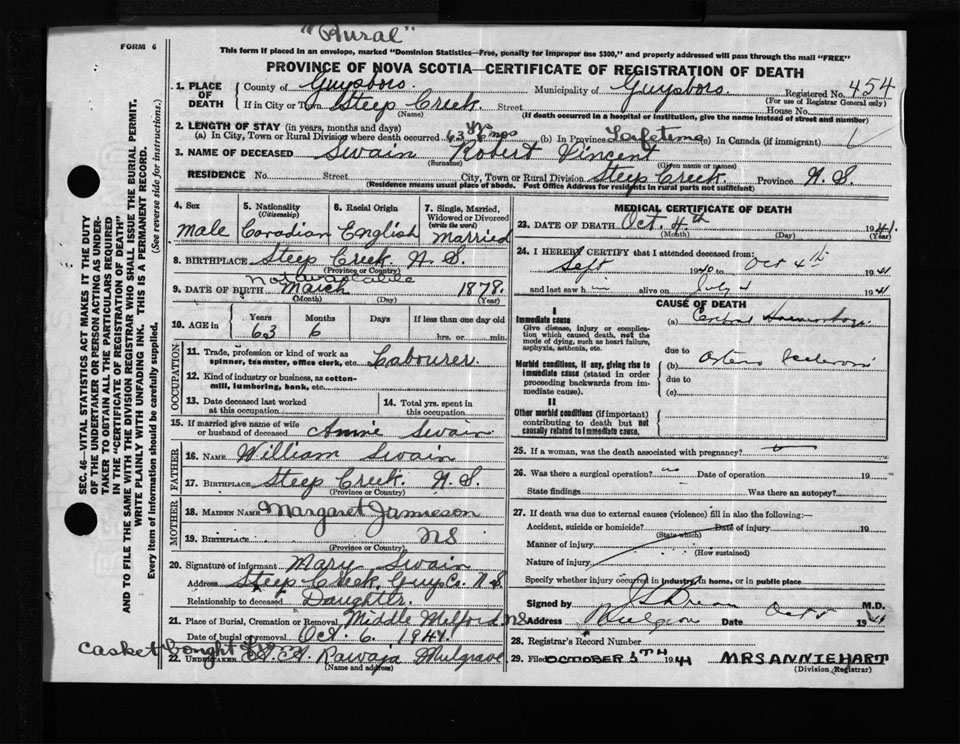 "Rural"
FORM 6
This form if placed in an envelope, marked "Dominion Statistics—Free, penalty for improper use $300," and properly addressed will pass through the mail "FREE"
PROVINCE OF NOVA SCOTIA—CERTIFICATE OF REGISTRATION OF DEATH
SEC. 46—VITAL STATISTICS ACT MAKES IT THE DUTY
OF THE UNDERTAKER OR PERSON ACTING AS UNDER-
TAKER TO OBTAIN ALL THE PARTICULARS REQUIRED
IN THE "CERTIFICATE OF REGISTRATION OF DEATH"
AND TO FILE THE SAME WITH THE DIVISION REGISTRAR WHO SHALL ISSUE THE BURIAL PERMIT.
WRITE PLAINLY WITH UNFADING INK. THIS IS A PERMANENT RECORD.
Every item of information should be carefully supplied. (See reverse side for instructions.)
1. PLACE OF DEATH County of Guysboro. Municipality of Guysboro. Registered No. 454
(For use of Registrar General only)
If in City or Town Steep Creek. Street House No.
(Name) (If death occurred in a hospital or institution, give the name instead of street and number)
2. LENGTH OF STAY (in years, months and days)
(a) In City, Town or Rural Division where death occurred 63 yrs 6 mos (b) In Province Lifetime (c) In Canada (if immigrant)
3. NAME OF DECEASED Swain Robert Vincent
(Surname) (Given name or names)
RESIDENCE No. Street City, Town or Rural Division Steep Creek. Province N. S.
(Residence means usual place of abode. Post Office Address for residents in rural parts not sufficient)
4. Sex Male
5. Nationality (Citizenship) Canadian
6. Racial Origin English
7. Single, Married, Widowed or Divorced (write the word) Married
8. BIRTHPLACE Steep Creek. N. S.
(Province or Country)
Not available
9. DATE OF BIRTH March 1878.
(Month) (Day) (Year)
10. AGE in Years 63 Months 6 Days If less than one day old hrs. or min.
OCCUPATION
11. Trade, profession or kind of work as spinner, teamster, office clerk, etc. Labourer.
12. Kind of industry or business, as cotton-mill, lumbering, bank, etc.
13. Date deceased last worked at this occupation
14. Total yrs. spent in this occupation
15. If married give name of wife or husband of deceased Annie Swain
FATHER
16. NAME William Swain
17. BIRTHPLACE Steep Creek. N. S.
(Province or Country)
MOTHER
18. MAIDEN NAME Margaret Jamieson
19. BIRTHPLACE NS
(Province or Country)
20. Signature of informant Mary Swain
Address Steep Creek, Guy Co. N. S.
Relationship to deceased Daughter.
21. Place of Burial, Cremation or Removal Middle Melford, NS
Date of burial or removal Oct. 6. 1941.
Casket bought
22. UNDERTAKER Mulgrave
(Name and address)
MEDICAL CERTIFICATE OF DEATH
23. DATE OF DEATH Oct. 4th 1941.
(Month) (Day) (Year)
24. I HEREBY CERTIFY that I attended deceased from:
Sept 1940 to Oct 4th 1941
and last saw him alive on July 4 1941
CAUSE OF DEATH
I
Immediate cause
Give disease, injury or complication which caused death, not the mode of dying, such as heart failure, asphyxia, asthenia, etc.
(a) Cerebral Haemorrhage
due to
Morbid conditions, if any, giving rise to immediate cause (stated in order proceeding backwards from immediate cause).
(b) Arterio Sclerosis
due to
(c)
II
Other morbid conditions (if important) contributing to death but not causally related to immediate cause.
25. If a woman, was the death associated with pregnancy?
26. Was there a surgical operation? no Date of operation 19
State findings Was there an autopsy?
27. If death was due to external causes (violence) fill in also the following:—
Accident, suicide or homicide? Date of injury 19
(State which)
Manner of injury
(How sustained)
Nature of injury
Specify whether injury occurred in industry, in home, or in public place
Signed by M.D.
Address Mulgrave Date Oct 1941
28. Registrar's Record Number
29. Filed OCTOBER 5TH 1941 MRS ANNIE HART
(Division Registrar)